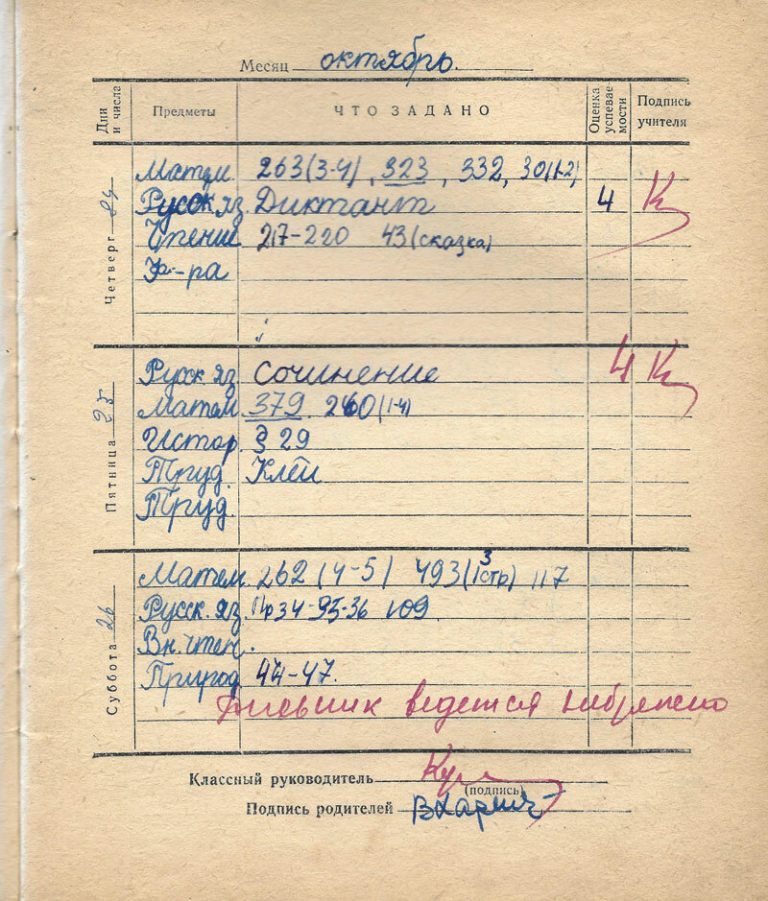 Месяц октябрь.
Дни и числа Предметы ЧТО ЗАДАНО Оценка успевае- мости Подпись учителя
Четверг 24
Матем 263(3-4), 323, 332, 30(1-2)
Русск яз. Диктант 4
Чтение 217-220 43(сказка)
Ф-ра
Пятница 25
Русск яз Сочинение 4
Матем 379. 260(1-4)
Истор. § 29
Труд. Клей
Труд.
Суббота 26
Матем. 262 (4-5) 493(1 3 стр) 117
Русск. яз. 109
Вн. чтен.
Природ 44-47.
Дневник ведется небрежно
Классный руководитель
(подпись)
Подпись родителей